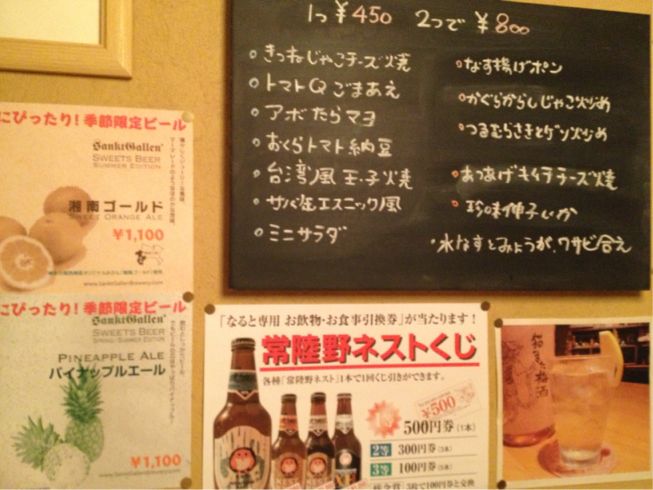 1つ ¥450 2つで ¥800
・きつねじゃこチーズ焼
・トマトQごまあえ
・アボたらマヨ
・おくらトマト納豆
・台湾風玉子焼
・サバ缶エスニック風
・ミニサラダ
・なす揚げポン
・かぐらからしじゃこ炒め
・つるむらさきとゲソ炒め
・あつあげキムチチーズ焼
・珍味伸子いか
・水なすとみょうが、ワサビ合え
にぴったり！季節限定ビール
SanktGallen
SWEETS BEER
SUMMER EDITION
湘南ゴールド
ORANGE ALE
¥1,100
www.SanktGallenBrewery.com
にぴったり！季節限定ビール
SanktGallen
SWEETS BEER
SPRING-SUMMER EDITION
PINEAPPLE ALE
パイナップルエール
¥1,100
「なると専用 お飲物・お食事引換券」が当たります！
常陸野ネストくじ
各種「常陸野ネスト」1本で1回くじ引きができます。
¥500
500円券(1本)
2等 300円券(3本)
3等 100円券(5本)
3枚で100円券と交換
梅酒